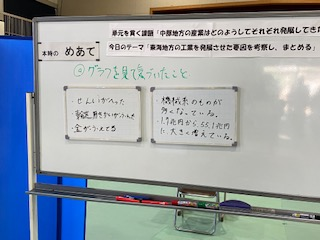 単元を貫く課題「中部地方の産業はどのようしてそれぞれ発展してき
本時の めあて
今日のテーマ「東海地方の工業を発展させた要因を考察し、まとめる」
グラフを見て気づいたこと
・せんいがへった
・輸送用きかいがふえた
・金がふえてる
・機械系のものが
多くなっている。
・1.9兆円から55.1兆円
に大きく増えている。